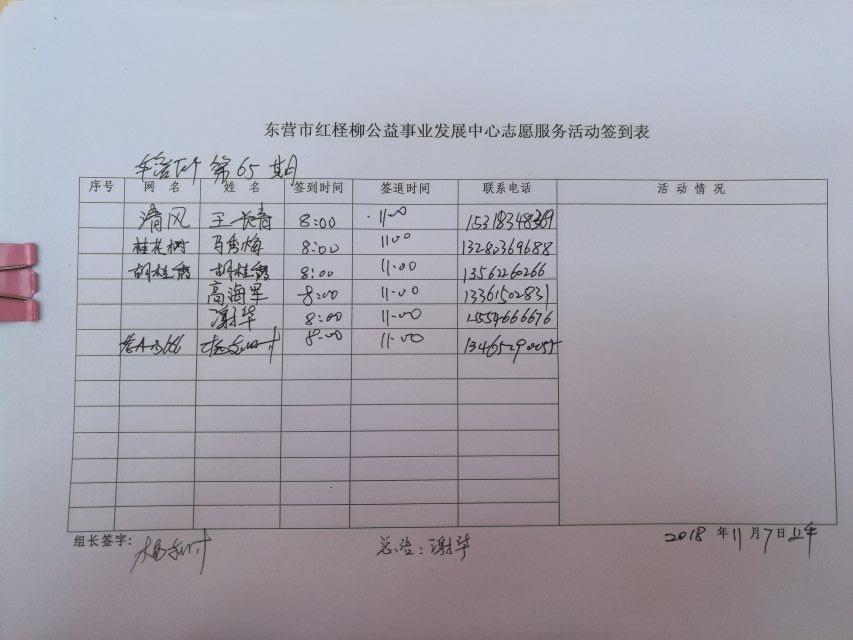 东营市红柽柳公益事业发展中心志愿服务活动签到表
第65期
序号 网名 姓名 签到时间 签退时间 联系电话 活动情况
清风 王长青 8:00 11:00 15318348369
桂花树 马秀梅 8:00 11:00 13280369688
胡桂香 胡桂香 8:00 11:00 13562260266
高海军 8:00 11:00 13361502831
谢华 8:00 11:00 15554666676
8:00 11:00
组长签字: 总结:谢华 2018年11月7日上午